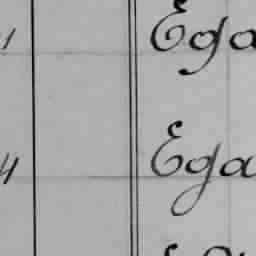 1 Ega
4 Ega